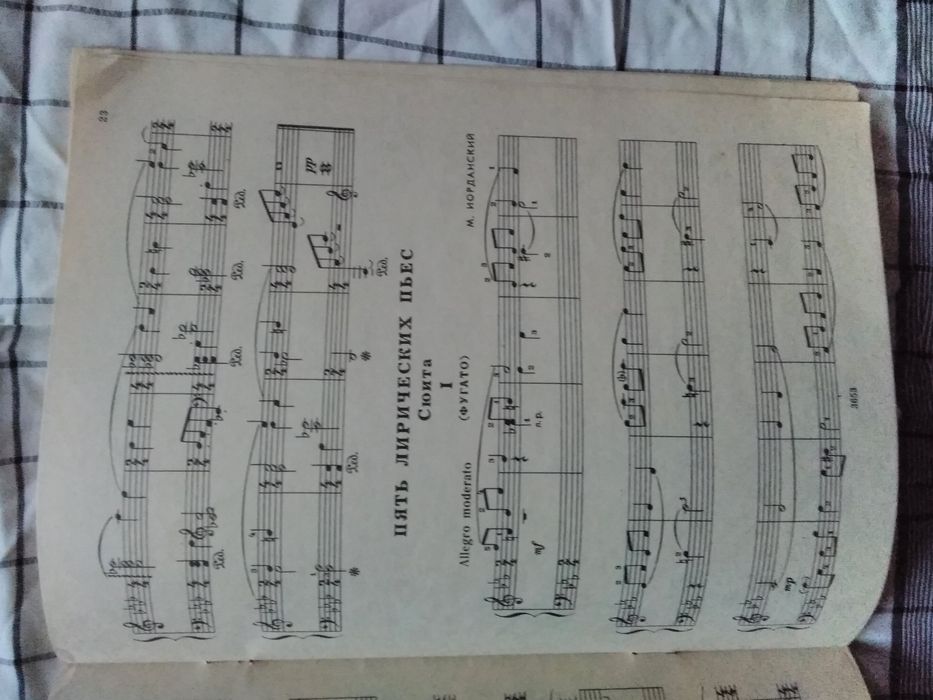 23
ПЯТЬ ЛИРИЧЕСКИХ ПЬЕС
Сюита
I
(ФУГАТО)
М. ИОРДАНСКИЙ
Allegro moderato
mf
л.р.
mp
pp
3653